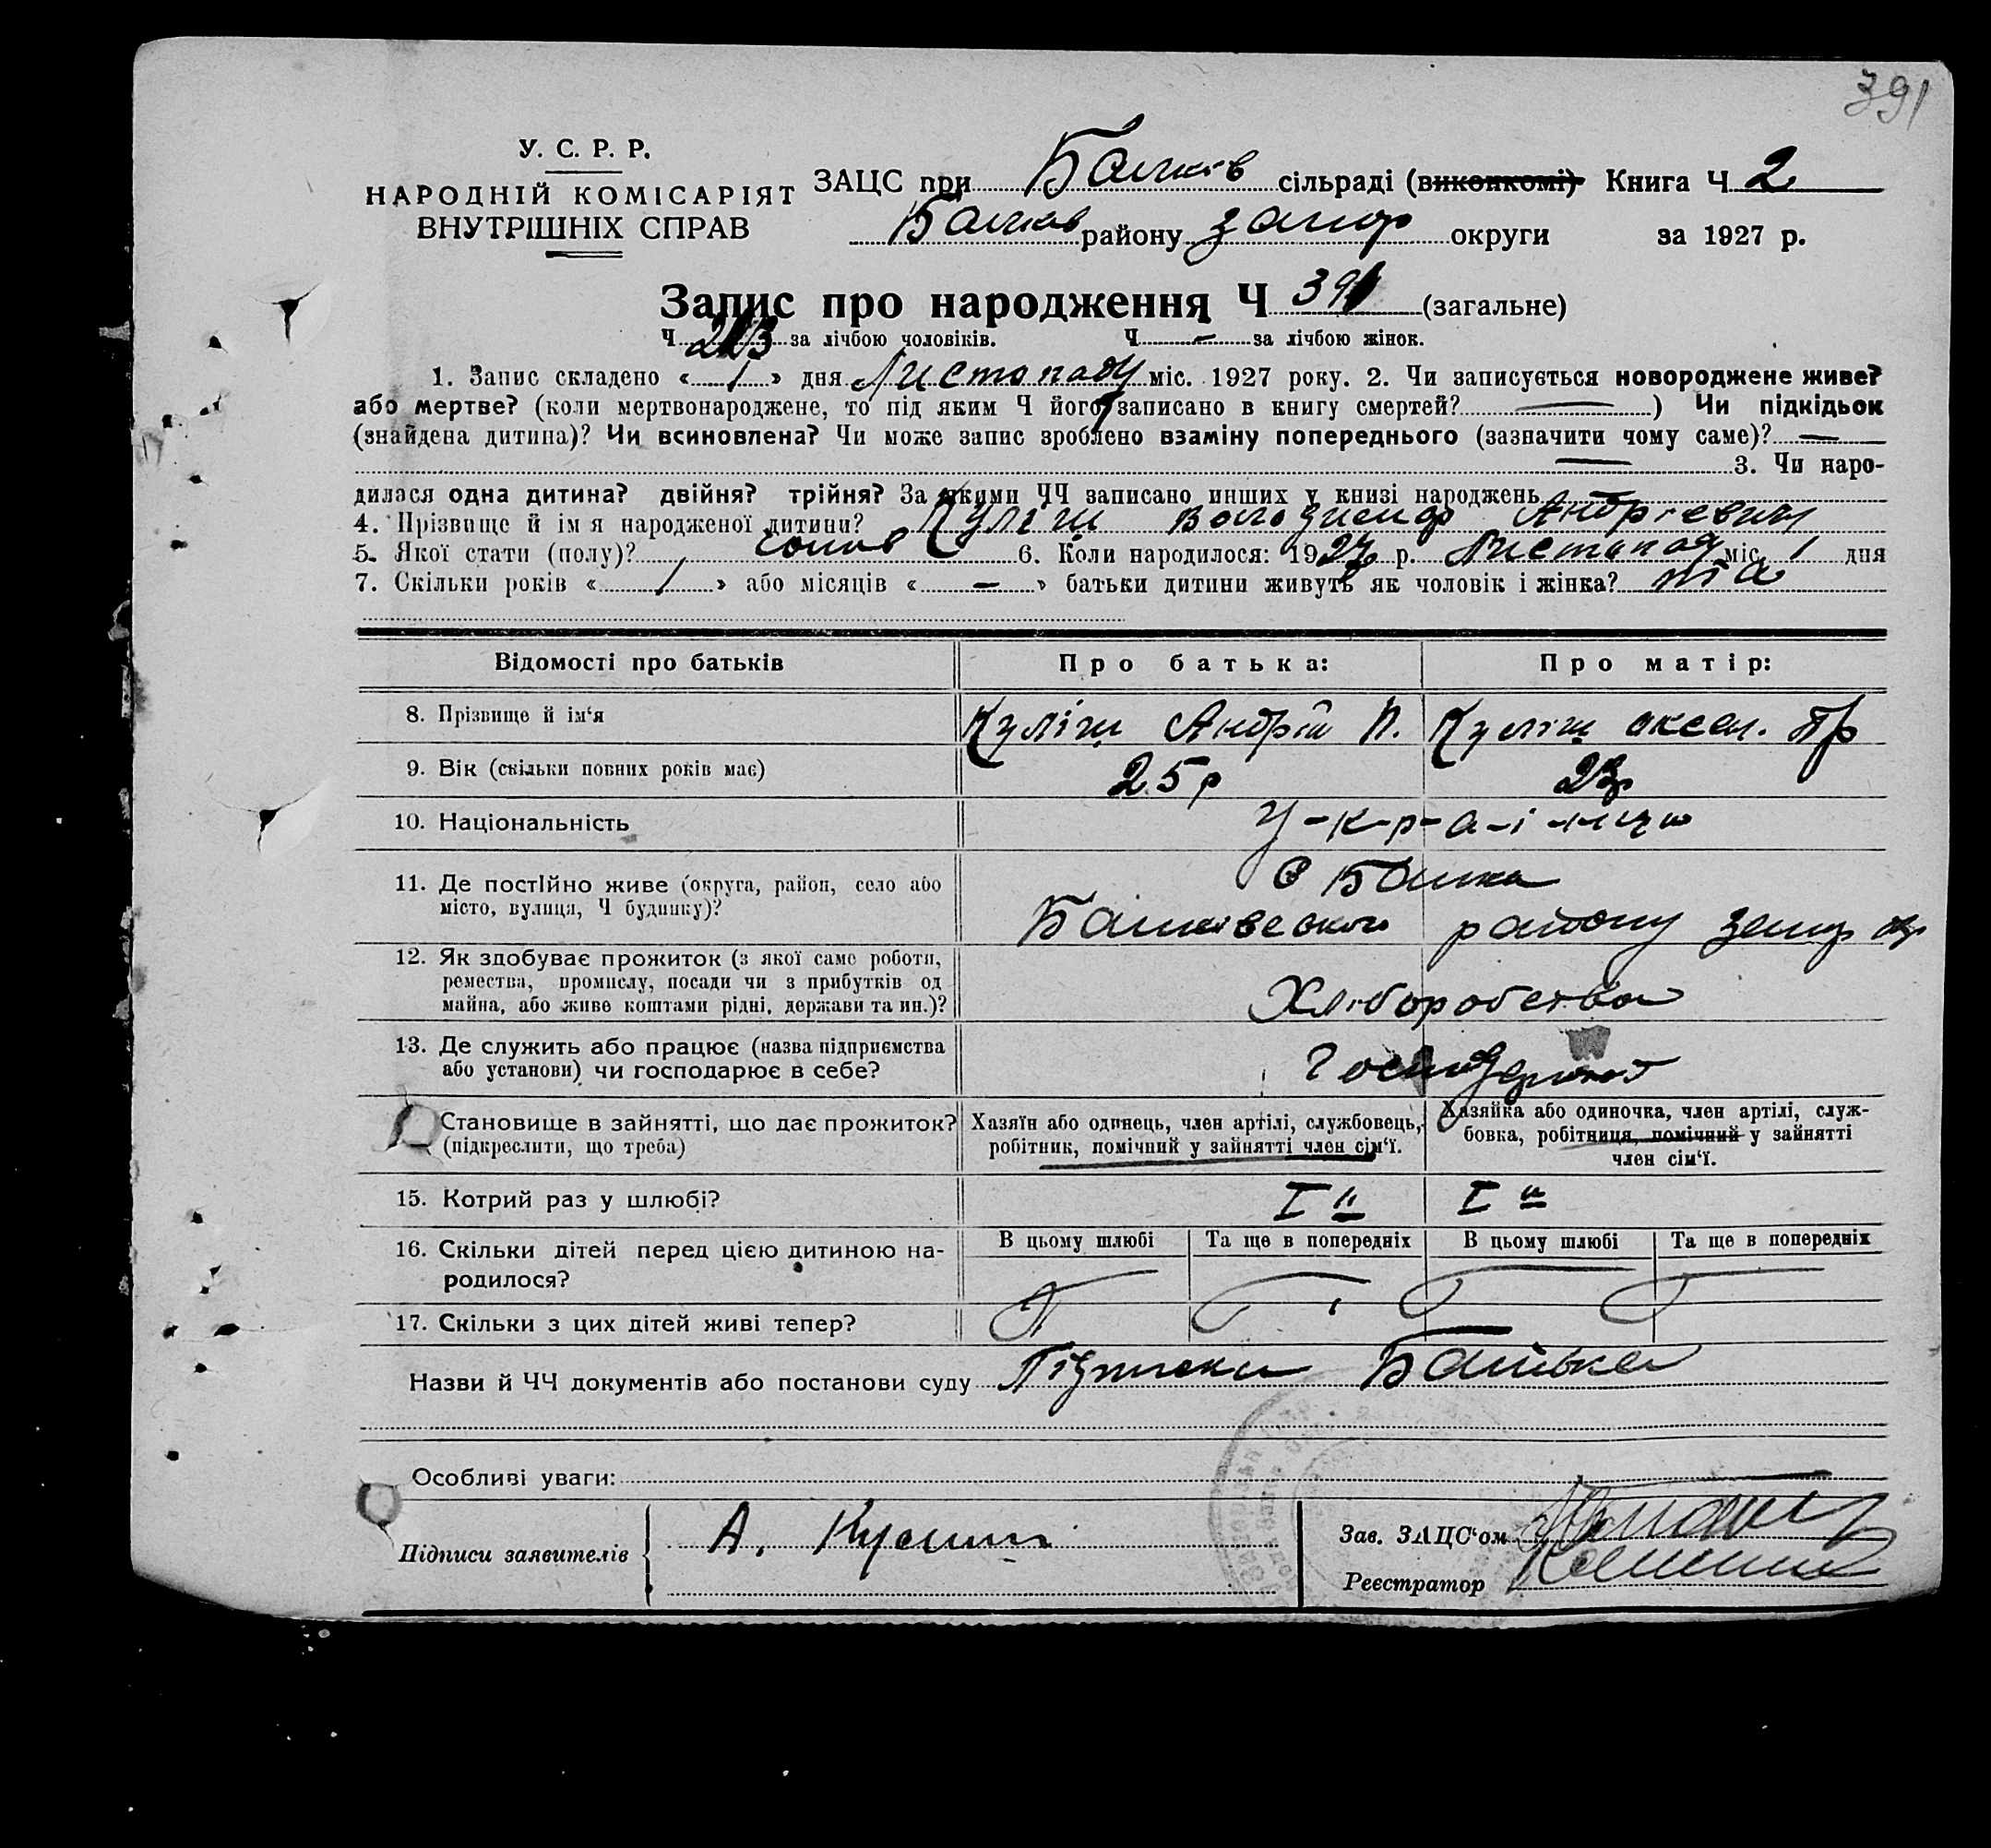 391
У. С. Р. Р.
НАРОДНІЙ КОМІСАРІЯТ
ВНУТРІШНІХ СПРАВ
ЗАЦС при сільраді (виконкомі) Книга Ч 2
району Запор округи за 1927 р.
Запис про народження Ч 391 (загальне)
Ч 213 за лічбою чоловіків. Ч — за лічбою жінок.
1. Запис складено « 1 » дня Листопаду міс. 1927 року. 2. Чи записується новороджене живе?
або мертве? (коли мертвонароджене, то під яким Ч його записано в книгу смертей? — ) Чи підкідьок
(знайдена дитина)? Чи всиновлена? Чи може запис зроблено взаміну попереднього (зазначити чому саме)? —
— 3. Чи наро-
дилася одна дитина? двійня? трійня? За якими ЧЧ записано инших у книзі народжень
4. Прізвище й ім я народженої дитини? Куліш Володимир Андрієвич
5. Якої стати (полу)? 6. Коли народилося: 1927 р. Листопад міс. 1 дня
7. Скільки років « 1 » або місяців « — » батьки дитини живуть як чоловік і жінка?
Відомості про батьків
Про батька:
Про матір:
8. Прізвище й ім‘я
Куліш Андрій П.
Куліш Оксан. Пр
9. Вік (скільки повних років має)
25 р
23р
10. Національність
У-к-р-а-ї-нці
11. Де постійно живе (округа, район, село або
місто, вулиця, Ч будинку)?
С
району Запор окр
12. Як здобуває прожиток (з якої саме роботи,
ремества, промислу, посади чи з прибутків од
майна, або живе коштами рідні, держави та ин.)?
Хліборобства
13. Де служить або працює (назва підприємства
або установи) чи господарює в себе?
Становище в зайнятті, що дає прожиток?
(підкреслити, що треба)
Хазяїн або одинець, член артілі, службовець,
робітник, помічний у зайнятті член сім‘ї.
Хазяйка або одиночка, член артілі, служ-
бовка, робітниця, помічний у зайнятті
член сім‘ї.
15. Котрий раз у шлюбі?
I й
I й
16. Скільки дітей перед цією дитиною на-
родилося?
В цьому шлюбі
Та ще в попередніх
В цьому шлюбі
Та ще в попередніх
17. Скільки з цих дітей живі тепер?
Назви й ЧЧ документів або постанови суду Батька
Особливі уваги:
Підписи заявителів
А. Кулиш
Зав. ЗАЦС‘ом
Реєстратор